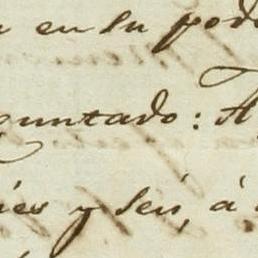 en su pod
guntado: A
ies y seis, á